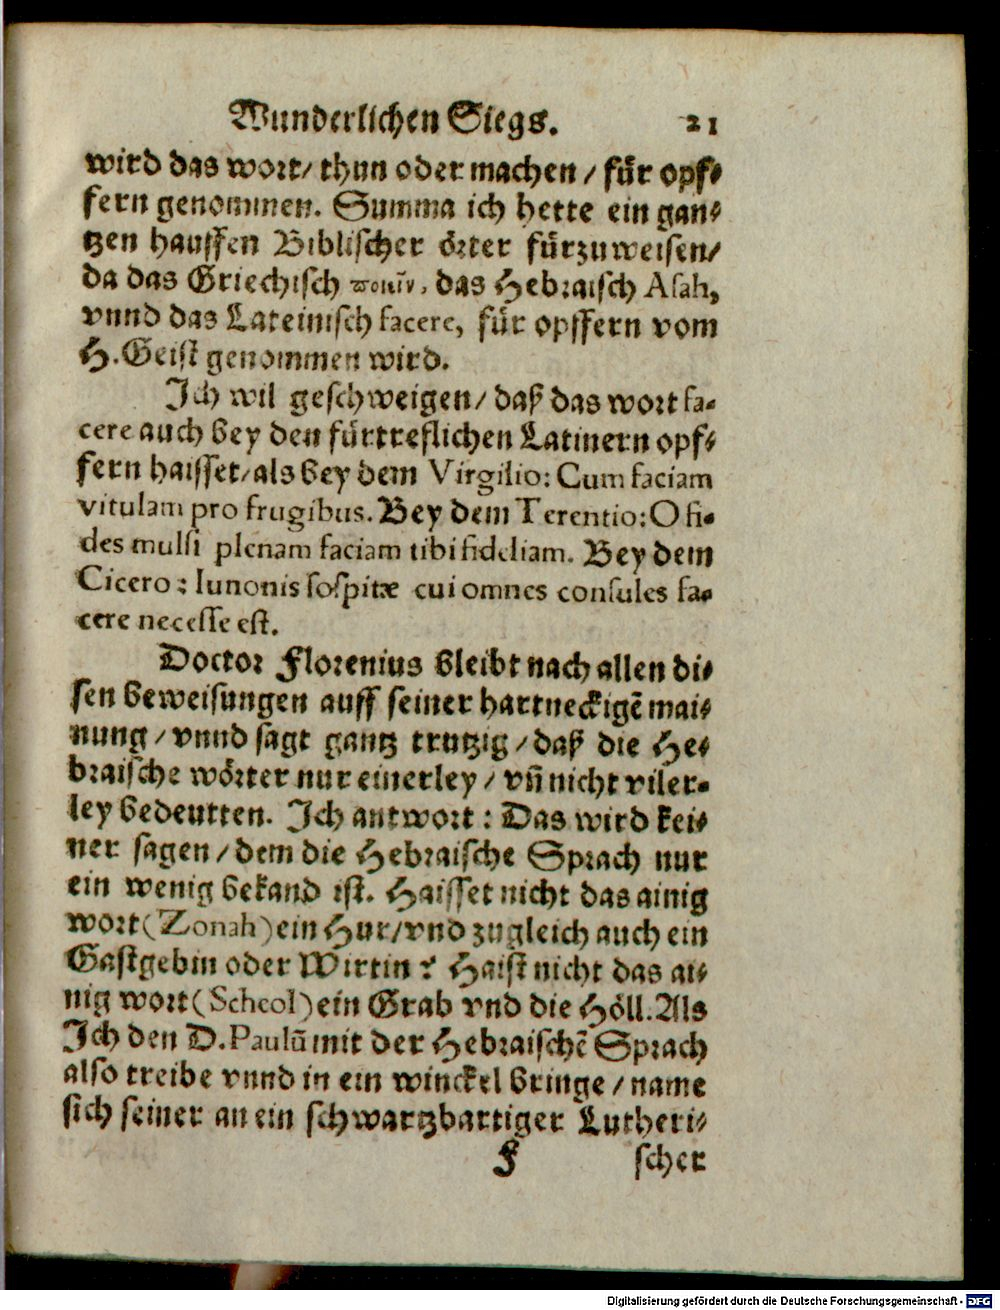 Wunderlichen Siegs. 21
wird das wort/ thun oder machen / für opf⸗
fern genommen. Summa ich hette ein gan⸗
tzen hauffen Biblischer örter fürzuweisen/
da das Griechisch ποιεῖν, das Hebraisch Asah,
vnnd das Lateinisch facere, für opffern vom
H. Geist genommen wird.
Ich wil geschweigen/ daß das wort fa-
cere auch bey den fürtreflichen Latinern opf⸗
fern haisset/ als bey dem Virgilio: Cum faciam
vitulam pro frugibus. Bey dem Terentio: O fi-
des mulsi plenam faciam tibi fideliam. Bey dem
Cicero: Iunonis sospitæ cui omnes consules fa-
cere necesse est.
Doctor Florenius bleibt nach allen di⸗
sen beweisungen auff seiner hartneckigē mai⸗
nung / vnnd sagt gantz trutzig / daß die He⸗
braische wörter nur einerley / vn̄ nicht viler-
ley bedeutten. Ich antwort: Das wird kei⸗
ner sagen / dem die Hebraische Sprach nur
ein wenig bekand ist. Haisset nicht das ainig
wort (Zonah) ein Hur/ vnd zugleich auch ein
Gastgebin oder Wirtin? Haist nicht das ai⸗
nig wort (Scheol) ein Grab vnd die Höll. Als
Ich den D. Paulū mit der Hebraischē Sprach
also treibe vnnd in ein winckel bringe / name
sich seiner an ein schwartzbartiger Lutheri⸗
F scher
Digitalisierung gefördert durch die Deutsche Forschungsgemeinschaft - DFG